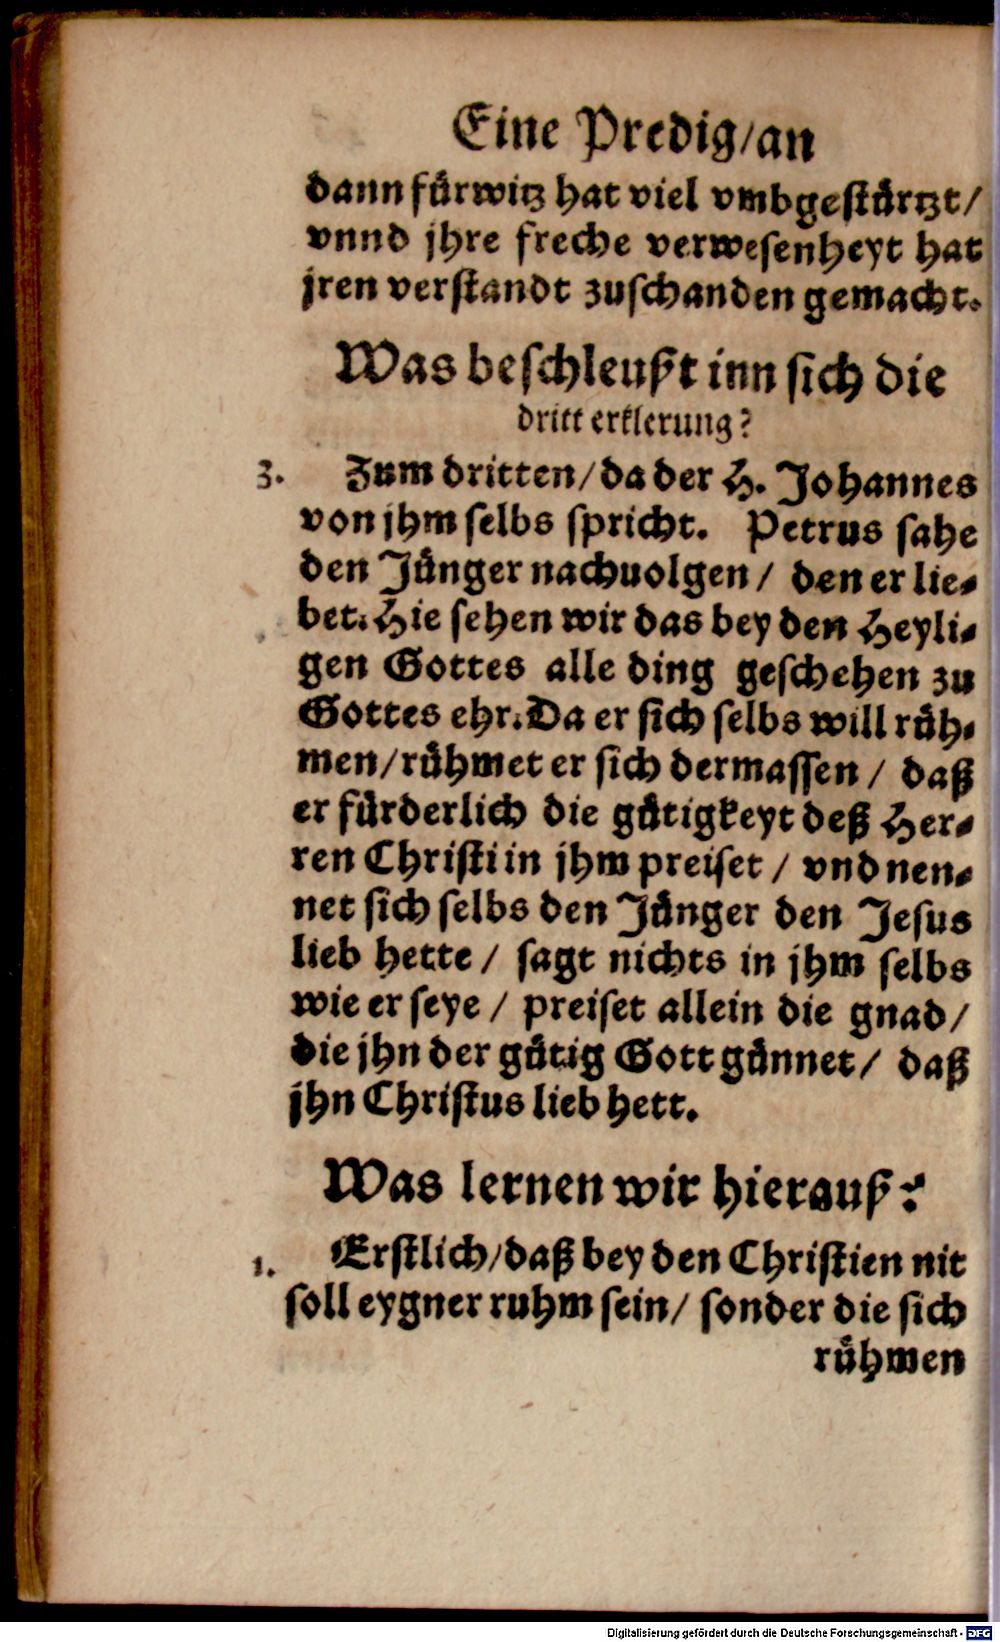 Eine Predig/an
dann fürwitz hat viel vmbgestürtzt/
vnnd jhre freche verwesenheyt hat
jren verstandt zuschanden gemacht.
Was beschleußt inn sich die
dritt erklerung?
3. Zum dritten/da der H. Johannes
von jhm selbs spricht. Petrus sahe
den Jünger nachuolgen/ den er lie-
bet. Hie sehen wir das bey den Heyli-
gen Gottes alle ding geschehen zu
Gottes ehr. Da er sich selbs will rüh-
men/rühmet er sich dermassen/ daß
er fürderlich die gütigkeyt deß Her-
ren Christi in jhm preiset/ vnd nen-
net sich selbs den Jünger den Jesus
lieb hette/ sagt nichts in jhm selbs
wie er seye/ preiset allein die gnad/
die jhn der gütig Gott günnet/ daß
jhn Christus lieb hett.
Was lernen wir hierauß?
1. Erstlich/daß bey den Christien nit
soll eygner ruhm sein/ sonder die sich
rühmen
Digitalisierung gefördert durch die Deutsche Forschungsgemeinschaft - DFG